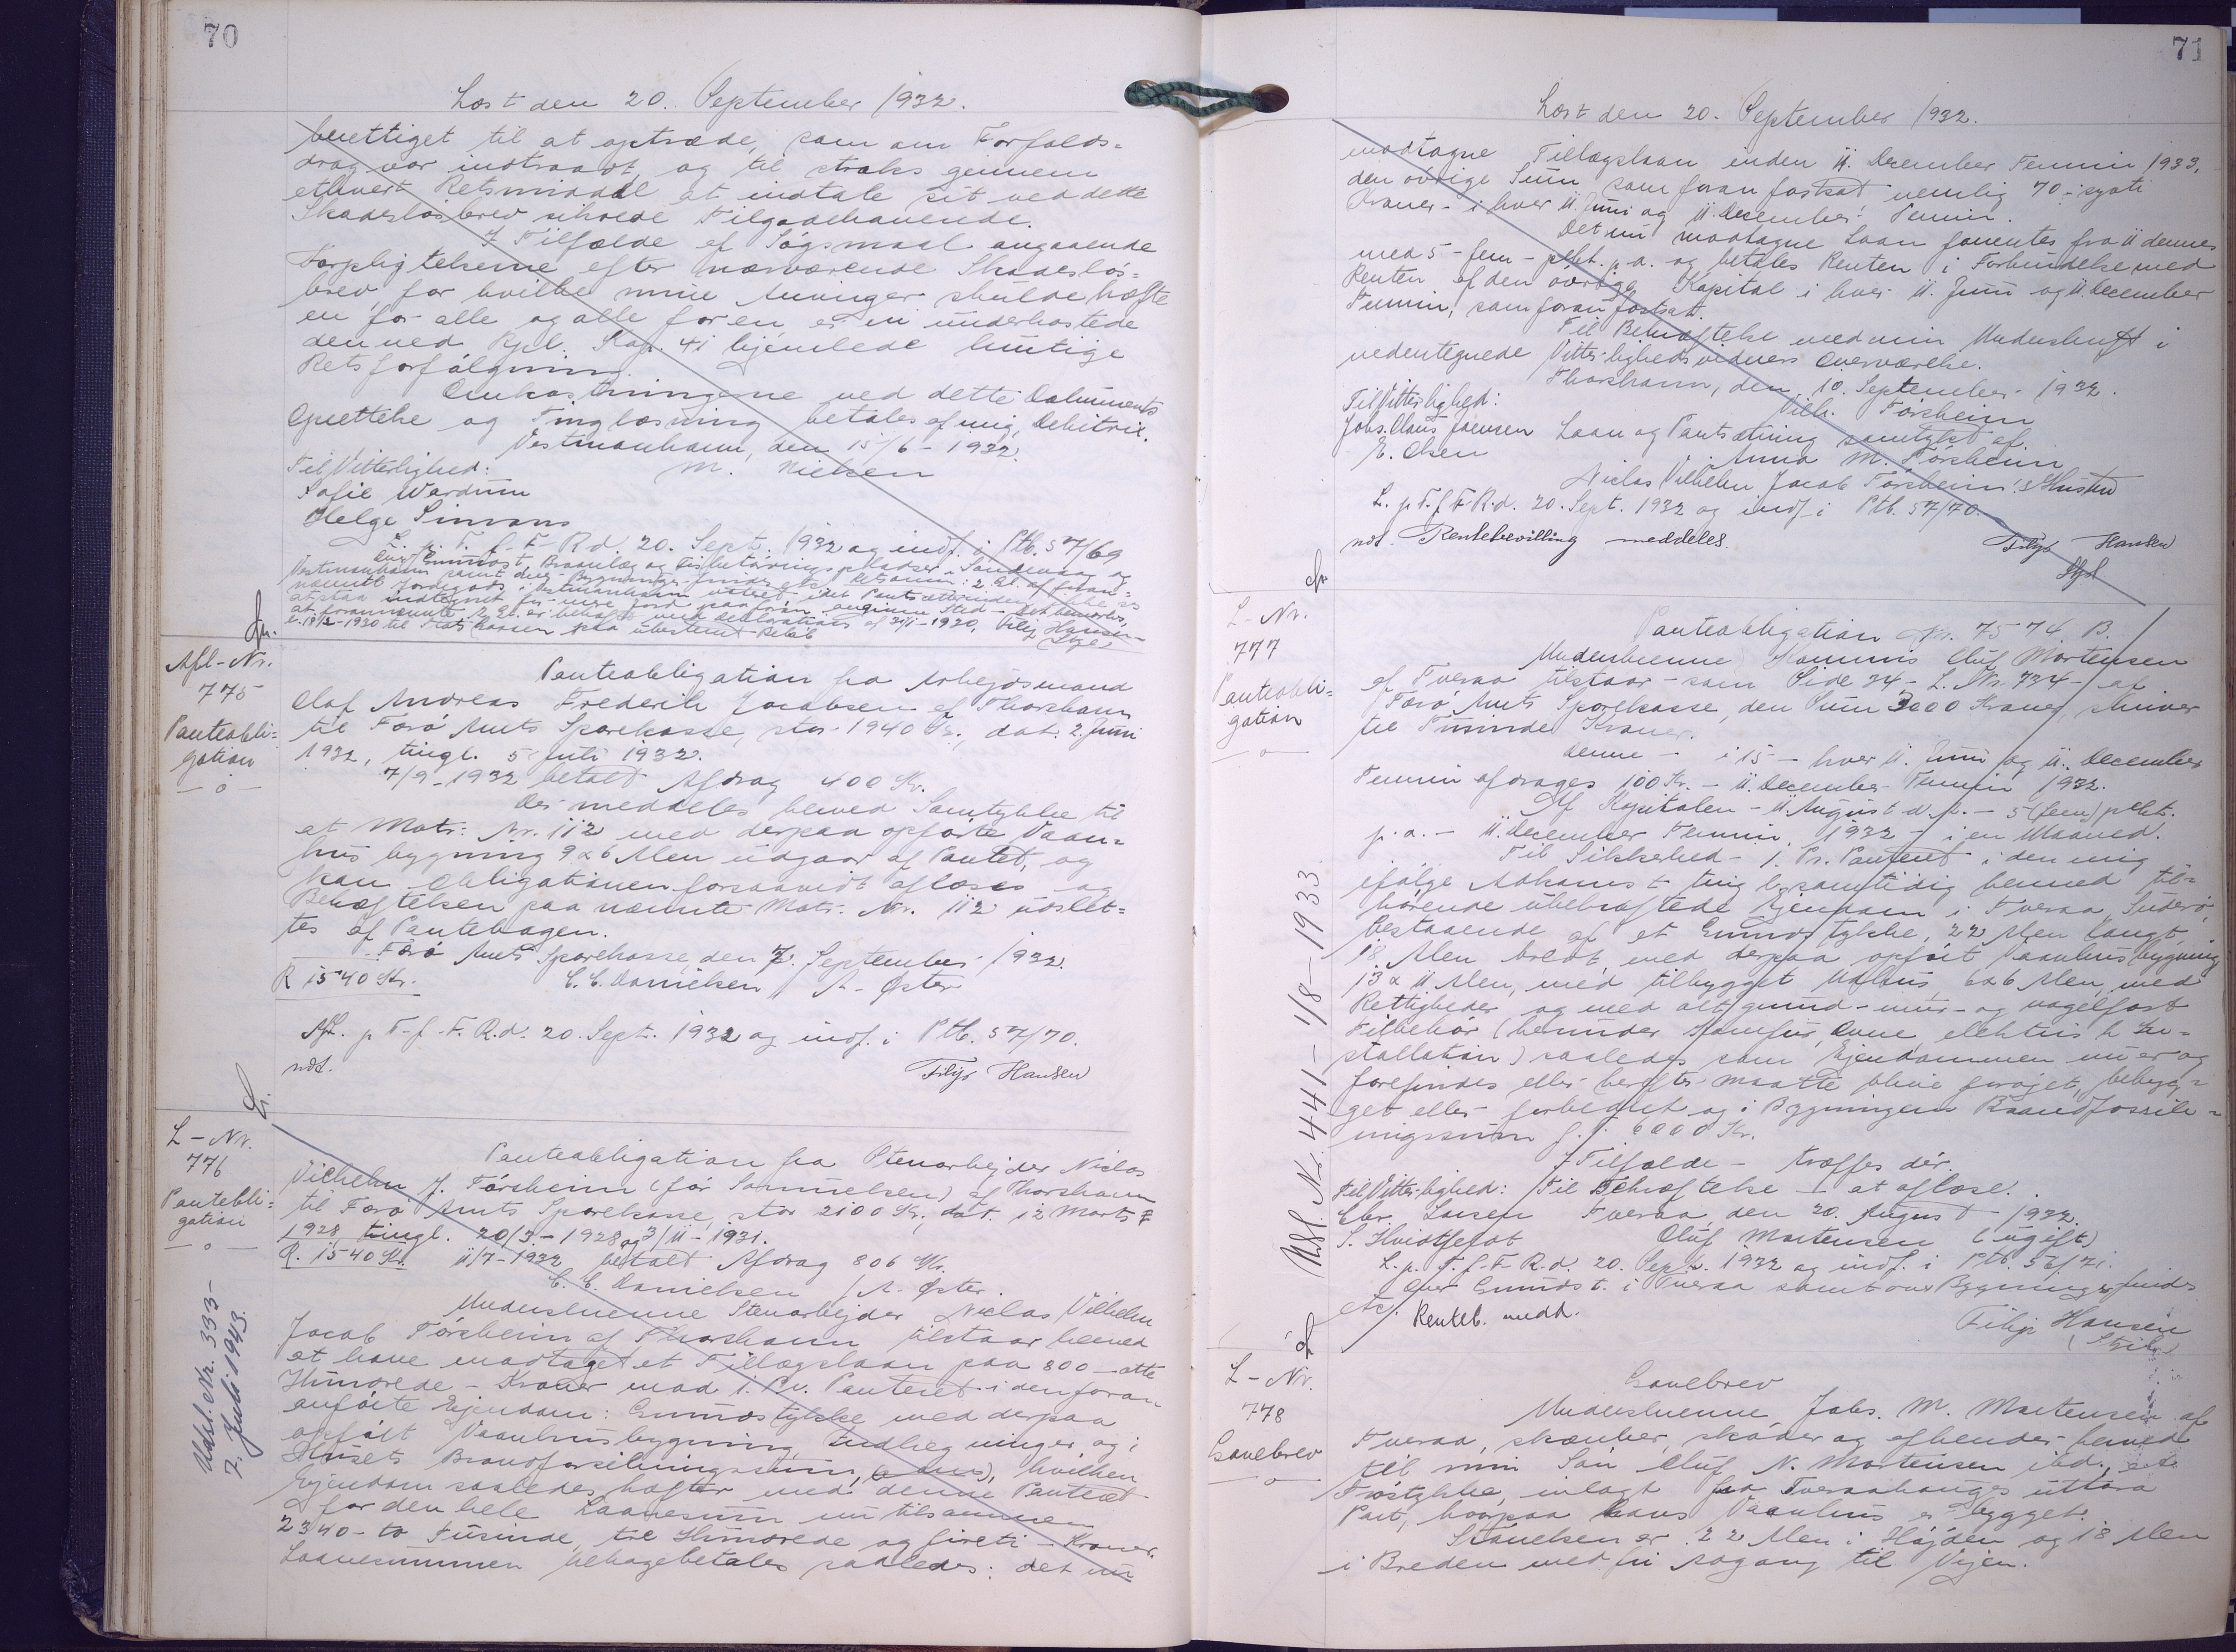 70
Læst den 20. September 1932.
berettiget til at optræde, som om Forfalds=
drag var indtraadt, og til straks gennem
ethvert Retsmiddel at indtale sit ved dette
Skadesløsbrev sikrede Tilgodehavende.
I Tilfælde af Søgsmaal angaaende
Forpligtelserne efter nærværende Skadesløs=
brev, for hvilke mine Arvinger skulde hæfte
en for alle og alle for en, er vi underkastede
den ved Rpl. Kap. 41 hjemlede hurtige
Retsforfølgning.
Omkostningerne ved dette Dokuments
Oprettelse og Tinglæsning betales af mig, Debitrix.
Vestmanhavn, den 15/6 - 1932.
Til Vitterlighed: M. Nielsen
Sofie Wardum
Helge Simons
L. p. T. f. F. R. d. 20. Sept. 1932 og indf. i Ptb. 57/69
Filip Hansen
Afl-Nr.
775
Panteobli=
gation
Panteobligation fra Arbejdsmand
Olaf Andreas Frederik Jacobsen af Thorshavn
til Færø Amts Sparekasse, stor 1940 Kr., dat. 2. Juni
1932, tingl. 5 Juli 1932.
7/9-1932 betalt Afdrag 400 Kr.
Der meddeles herved Samtykke til
at Matr: Nr. 112 med derpaa opførte Vaan=
hus bygning 9 x 6 Alen udgaar af Pantet, og
kan Obligationen forsaavidt aflæses og
Behæftelsen paa nævnte Matr: Nr. 112 udslet=
tes af Pantebogen.
Færø Amts Sparekasse, den 7. September 1932.
R 1540 Kr. C. C. Danielsen / A. Øster
Afl. p. T. f. F. R. d. 20. Sept. 1932 og indf. i Ptb. 57/70.
ndt. Filip Hansen
L-Nr.
776
Panteobli=
gation
Panteobligation fra Stenarbejder Niclas
Vilhelm J. Tórsheim (før Samuelsen) af Thorshavn
til Færø Amts Sparekasse, stor 2100 Kr., dat. 12 Marts
1928, tingl. 20/3-1928 og 3/11-1931.
R. 1540 Kr. 11/7-1932 betalt Afdrag 806 Kr.
C. C. Danielsen / A. Øster.
Underskrevne Stenarbejder Niclas Vilhelm
Jacob Tórsheim af Thorshavn tilstaar herved
at have modtaget et Tillægslaan paa 800 - otte
Hundrede - Kroner mod 1. Pr. Panteret i den foran
anførte Ejendom: Grundstykke med derpaa
opført Vaanhusbygning, Indhegninger, og i
Husets Brandforsikringssum, hvilken
Ejendom saaledes hæfter med denne Panteret
for den hele Laanesum nu tilsammen
2340 - to Tusinde, tre Hundrede og fireti - Kroner.
Laanesummen tilbagebetales saaledes: det nu
Udsl. Nr. 333-
7. Juli 1943.
71
Læst den 20. September 1932.
modtagne Tillægslaan inden 11. December Termin 1933,
den øvrige Sum som foran fastsat nemlig 70 - syvti
Kroner - i hver 11. Juni og 11. December Termin.
Det nu modtagne Laan forrentes fra 11 dennes
med 5 - fem - pCt. p. a. og betales Renten i Forbindelse med
Renten af den øvrige Kapital i hver 11. Juni og 11. December
Termin, som foran fastsat.
Til Bekræftelse med min Underskrift i
undertegnede Vitterlighedsvidners Overværelse.
Thorshavn, den 10. September 1932.
Til Vitterlighed: Vilh. Tórsheim
Johs. Claus Joensen Laan og Pantsætning samtykt af
E. Olsen Anna M. Tórsheim
Niclas Vilhelm Jacob Tórsheim's Hustru
L. p. T. f. F. R. d. 20. Sept. 1932 og indf. i Ptb. 57/70.
ndt. Rentebevilling meddeles. Filip Hansen
L-Nr.
777
Panteobli=
gation
Panteobligation Nr. 7574. B.
Underskrevne Kommis Oluf Mortensen
af Tveraa tilstaar - som Side 34 - L. Nr. 734 - af
Færø Amts Sparekasse, den Sum 3000 Kroner, skriver
tre Tusinde Kroner.
denne - i 15 - hver 11. Juni og 11. December
Termin afdrages 100 Kr. - 11. December Termin 1932.
Af Kapitalen - 11. August d. A. - 5 (fem) pCt.
p. a. - 11. December Termin 1932 - i en Maaned.
Til Sikkerhed - 1. Pr. Panteret i den mig
ifølge Adkomst tingl. samtidig hermed til=
hørende ubehæftede Ejendom i Tveraa, Suderø,
bestaaende af et Grundstykke, 22 Alen langt,
18 Alen bredt, med derpaa opført Vaanhusbygning
13 x 11 Alen, med tilbygget Udhus, 6x6 Alen, med
Rettigheder og med alt grund- mur- og nagelfast
Tilbehør (herunder Komfur, Ovne, elektrisk In=
stallation) saaledes som Ejendommen nu er og
forefindes eller herefter maatte blive forøjet, bebyg=
get eller forbedret og i Bygningens Brandforsik=
ringssum p. t. 6000 Kr.
I Tilfælde - træffes dér.
Til Vitterlighed: Til Bekræftelse - at aflæse.
Chr. Larsen Tveraa, den 20. August 1932.
S. Hvidtfeldt Oluf Mortensen (ugift)
L. p. T. f. F. R. d. 20. Sept. 1932 og indf. i Ptb. 57/71.
Over Grundst. i Tveraa samt over Bygnings fund
etc. Renteb. medd.
Filip Hansen
Udsl. Nr. 441 - 1/8 - 1933
L-Nr.
778
Gavebrev
Gavebrev
Underskrevne Johs. M. Mortensen af
Tveraa, skænker, skøder og afhænder herved
til min Søn Oluf N. Mortensen ibd., et
Træstykke, inlagt fra Tveraahauges uttara
Part, hvorpaa hans Vaanhus er bygget.
Størrelsen er 22 Alen i Højden og 18 Alen
i Breden med fri Adgang til Vejen.